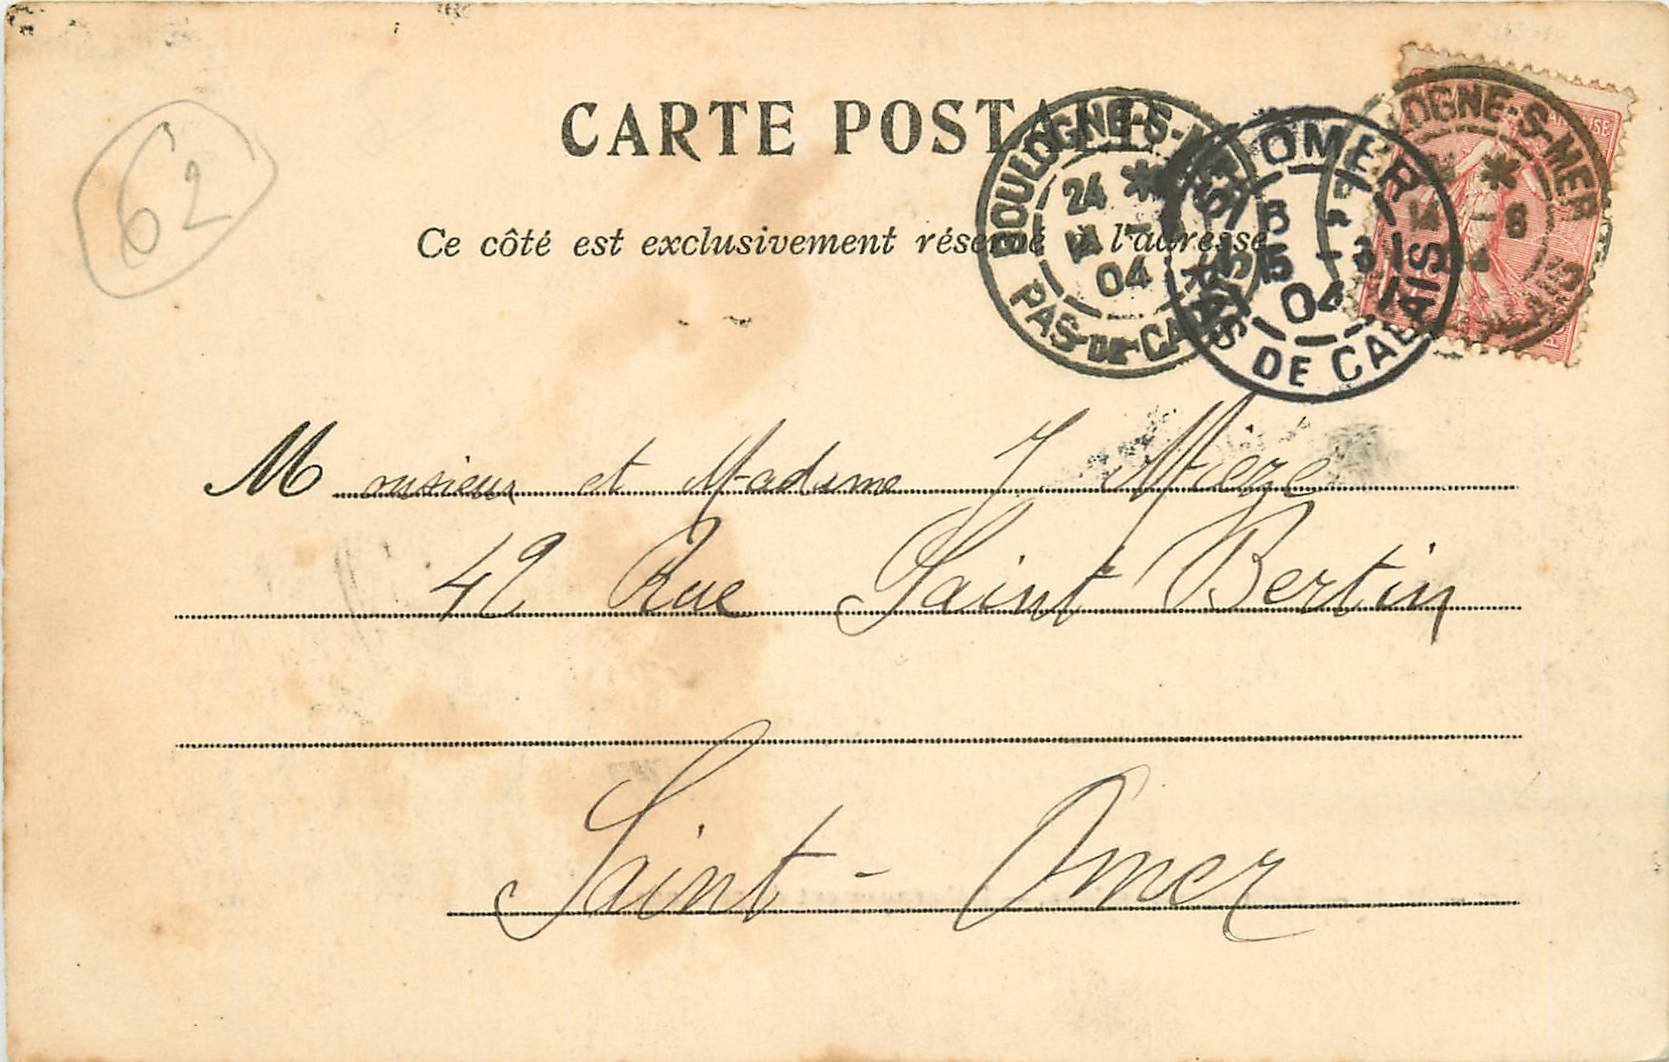 62
CARTE POSTALE
Ce côté est exclusivement réservé à l'adresse
BOULOGNE-S-MER
24 *
14 - 8
04
PAS-DE-CALAIS
ST OMER
15 - 8
04
PAS DE CALAIS
BOULOGNE-S-MER
*
14 - 8
Monsieur et Madame J. Mieze
42 Rue Saint Bertin
Saint-Omer